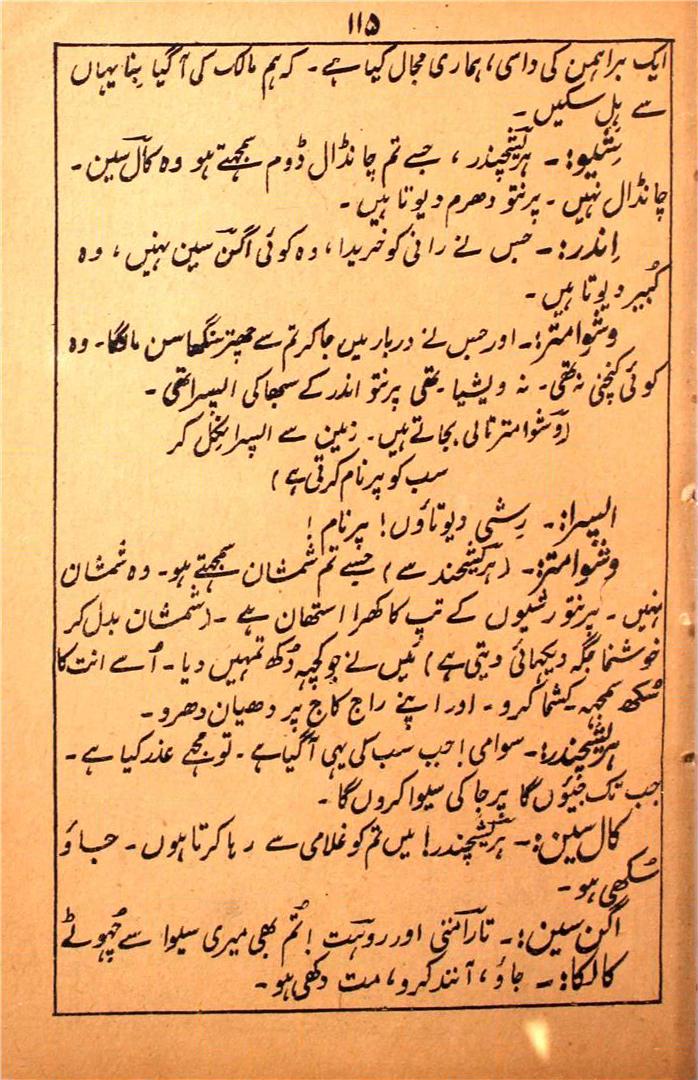 ۱۱۵
ایک براہمن کی داسی، ہماری مجال کیا ہے۔ کہ ہم مالک کی آگیا بِنا یہاں
سے ہِل سکیں۔
شِیو:۔ ہرِیشچندر، جسے تم چانڈال ڈوم سمجھتے ہو وہ کال سین۔
چانڈال نہیں۔ پرنتو دھرم دیوتا ہیں۔
اِندر:۔ جس نے رانی کو خریدا، وہ کوئی اگن سین نہیں، وہ
کُبیر دیوتا ہیں۔
وشوامتر:۔ اور جس نے دربار میں جاکر تم سے چھتر سنگھاسن مانگا۔ وہ
کوئی کنچنی نہ تھی۔ نہ ویشیا۔ تھی پرنتو اندر کے سبھا کی اپسرا تھی۔
(وشوامتر تالی بجاتے ہیں۔ زمین سے اپسرا نِکل کر
سب کو پرنام کرتی ہے)
اپسرا:۔ رِشی دیوتاؤں! پرنام!
وشوامتر:۔ (ہرکشچند سے) جسے تم شمشان سمجھتے ہو۔ وہ شمشان
نہیں۔ پرنتو رشیوں کے تپ کا کھرا استھان ہے۔ (شمشان بدل کر
خوشنما جگہ دیکھائی دیتی ہے) مَیں نے جو کچھ دُکھ تمہیں دیا۔ اُسے انت کا
سُکھ سمجھ کشما کرو۔ اور اپنے راج کاج پر دھیان دھرو۔
ہرِیشچندر:۔ سوامی! جب سب کی یہی آگیا ہے۔ تو مجھے عذر کیا ہے۔
جب تک جیُوں گا پرجا کی سیوا کروں گا۔
کال سین:۔ ہرِیشچندر! میں تم کو غلامی سے رہا کرتا ہوں۔ جاؤ
سُکھی ہو۔
اگن سین:۔ تارامتی اور روہت! تُم بھی میری سیوا سے چُھوٹے
کالکا:۔ جاؤ، آنند کرو، مت دکھی ہو۔